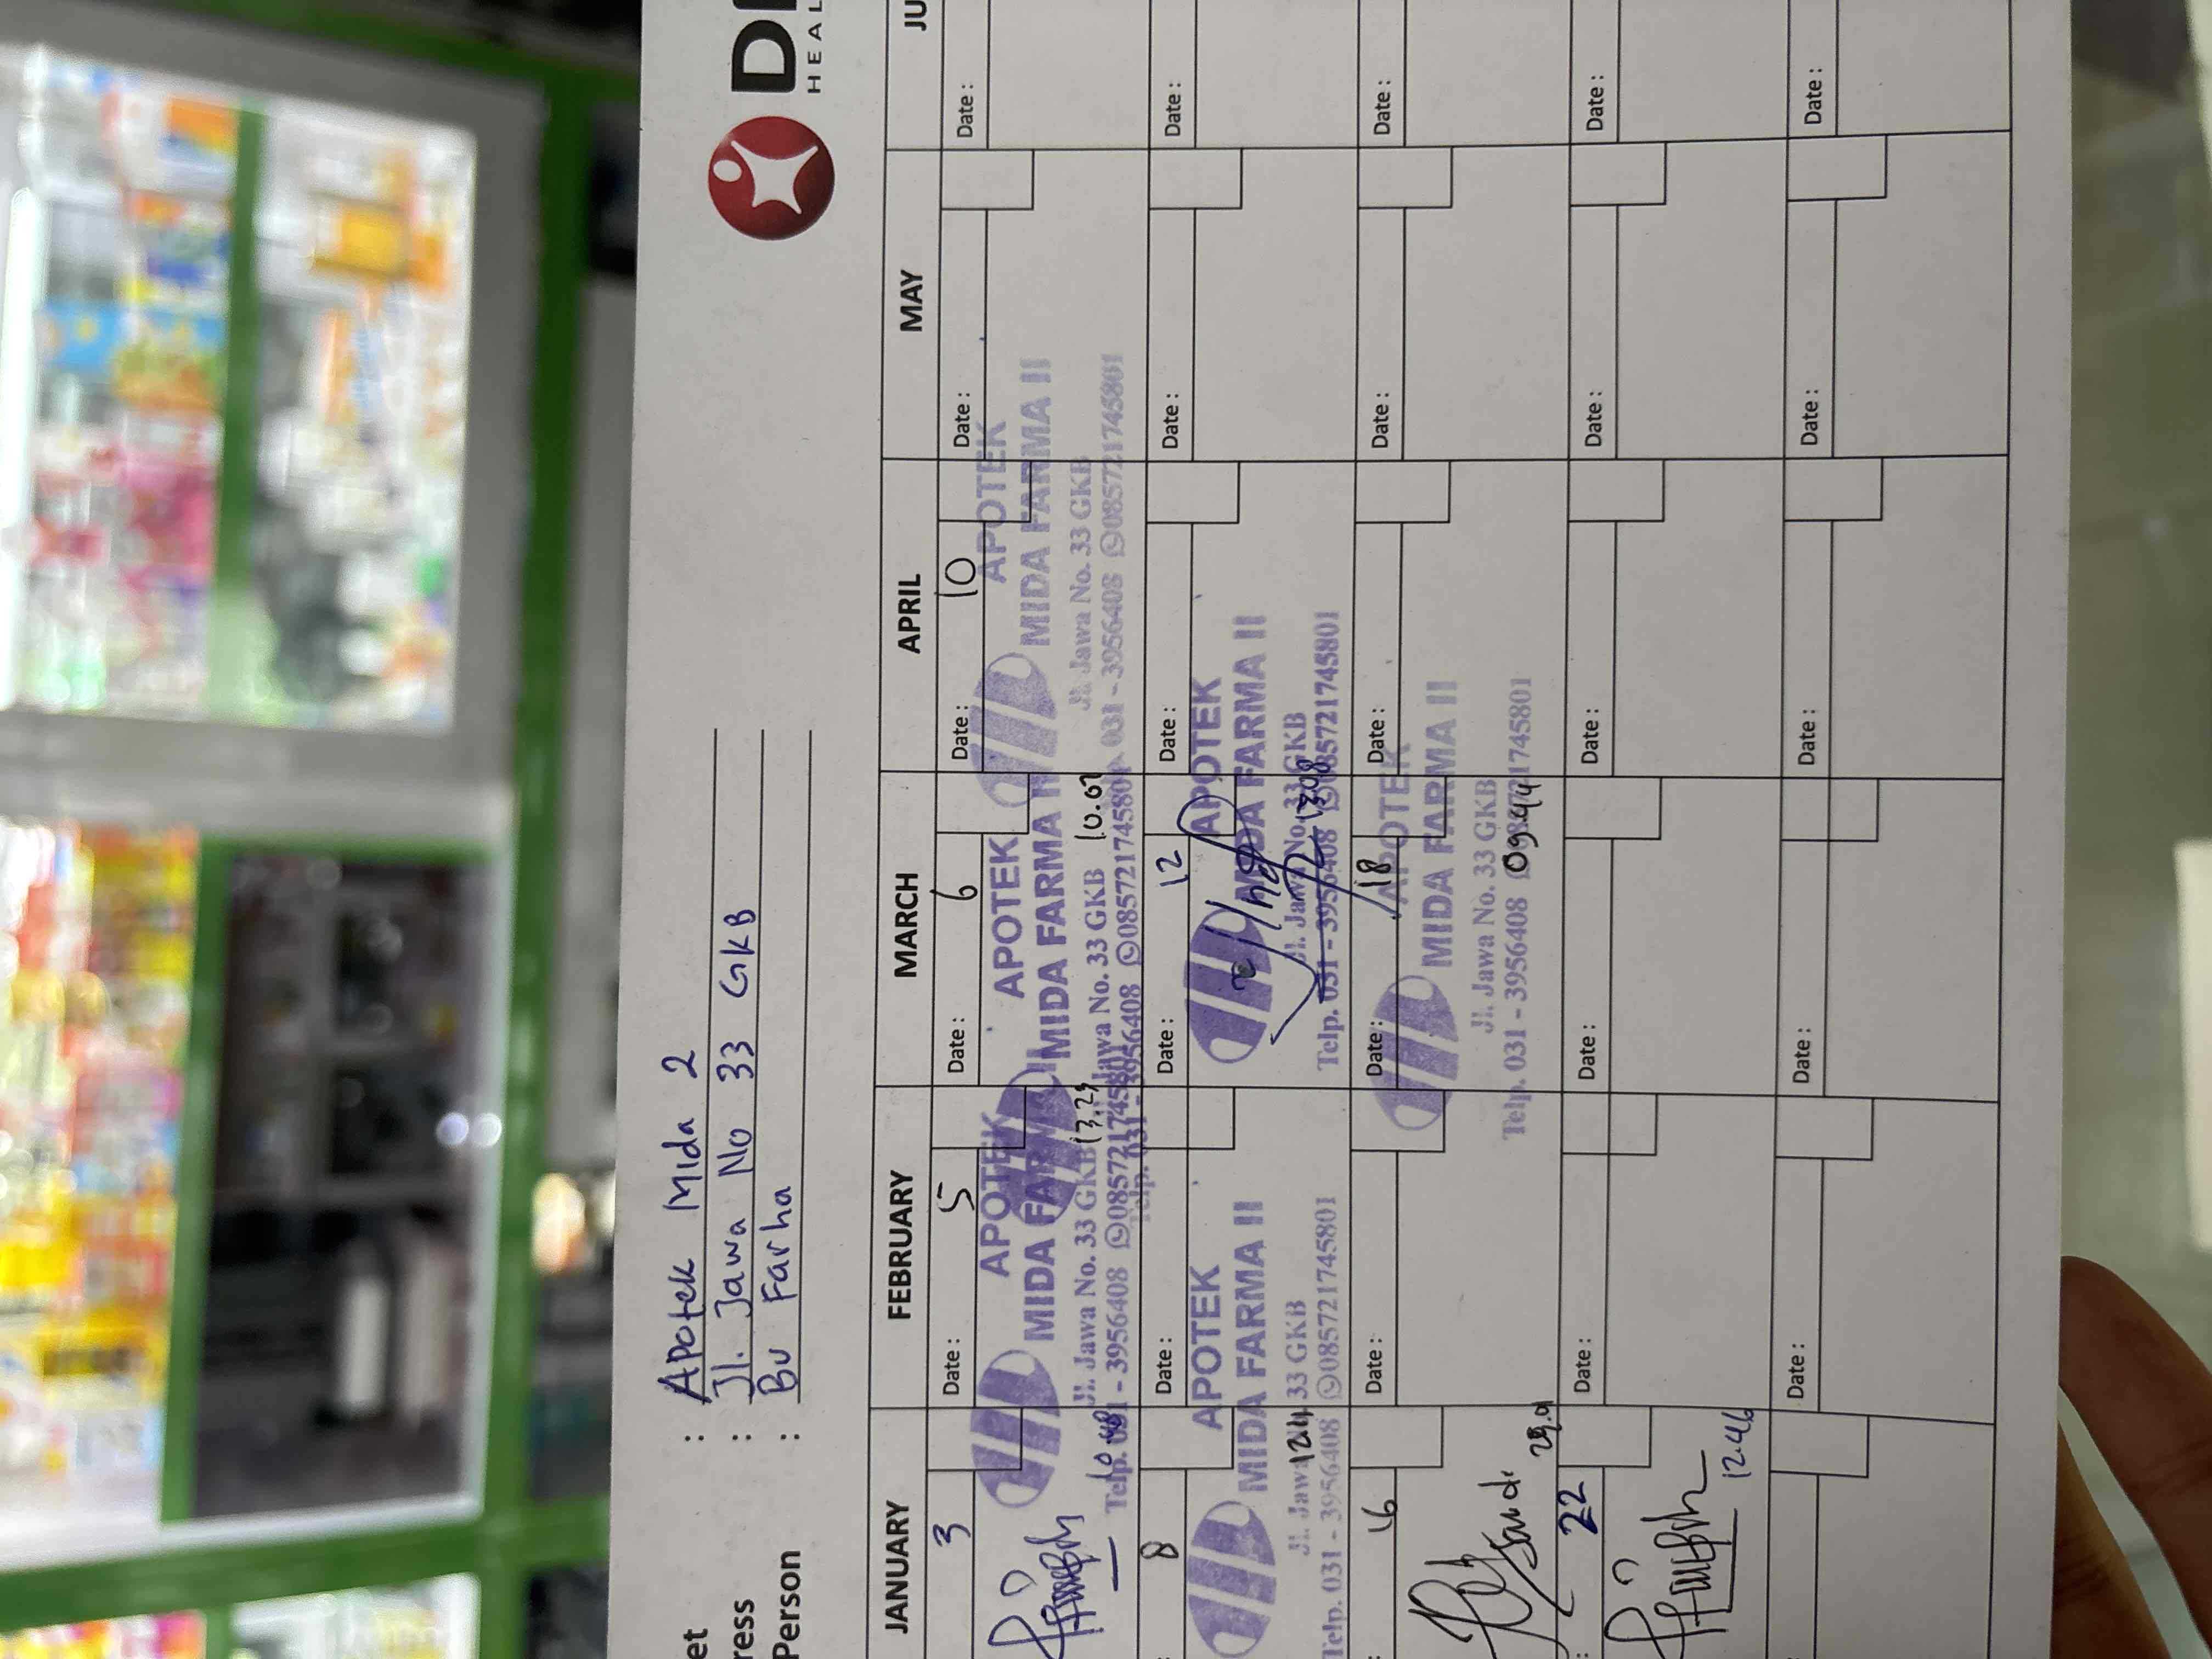 et : Apotek Mida 2
ress : Jl. Jawa No 33 GKB
Person : Bu Farha
HEAL
JANUARY FEBRUARY MARCH APRIL MAY JU
3 Date : 5 Date : 6 Date : 10 Date : Date :
APOTEK APOTEK APOTEK
MIDA FARMA II MIDA FARMA II MIDA FARMA II
Jl. Jawa No. 33 GKB 13.29 Jawa No. 33 GKB 10.67 Jl. Jawa No. 33 GKB
Telp. 031 - 3956408 085721745801 Telp. 031 - 3956408 085721745801 031 - 3956408 085721745801
8 Date : Date : 12 Date : Date : Date :
APOTEK APOTEK
MIDA FARMA II MIDA FARMA II
Jl. Jawa 33 GKB Jl. Jawa No. 33 GKB
Telp. 031 - 3956408 085721745801 Telp. 031 - 3956408 085721745801
16 Date : Date : 18 Date : Date : Date :
APOTEK
MIDA FARMA II
Jl. Jawa No. 33 GKB
Telp. 031 - 3956408 085721745801
09.44
: 22 Date : Date : Date : Date : Date :
12.46
Date : Date : Date : Date : Date :